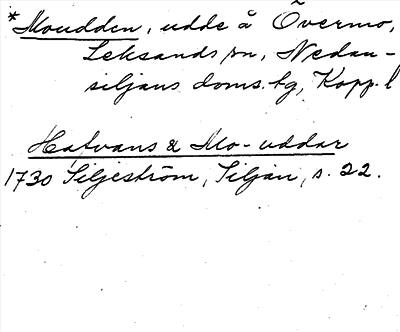 *Moudden, udde å Övermo,
Leksands sn, Nedan-
siljans doms.hg, Kopp. l
Hafvans & Mo-uddar
1730 Siljeström, Siljan, s. 22.